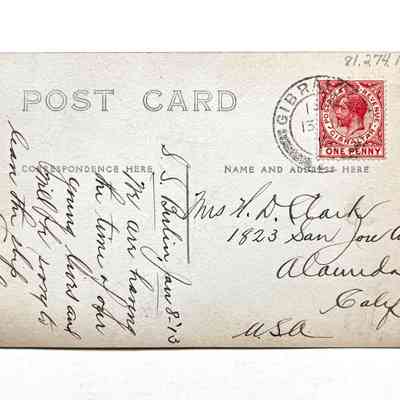 81.274.1
POST CARD
GIBRAL
13
POSTAGE & REVENUE
GIBRALTAR
ONE PENNY
CORRESPONDENCE HERE
NAME AND ADDRESS HERE
S.S. Berlin, Jan 8-'13
We are having
the time of our
young lives and
will be sorry to
leave the ship
Mrs H. D. Clark
1823 San Jose
Alameda
Calif
USA